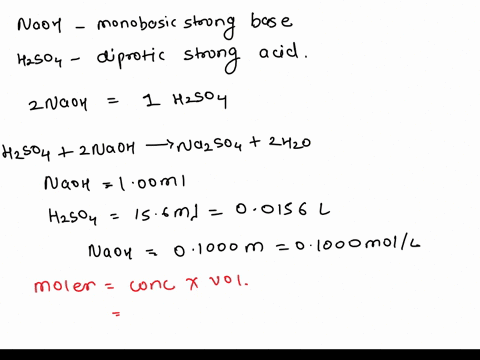 NaOH - monobasic strong base
H2SO4 - diprotic strong acid.
2NaOH = 1 H2SO4
H2SO4 + 2NaOH → Na2SO4 + 2H2O
NaOH = 1.00ml
H2SO4 = 15.6ml = 0.0156 L
NaOH = 0.1000m = 0.1000mol/L
moles = conc x vol.
=